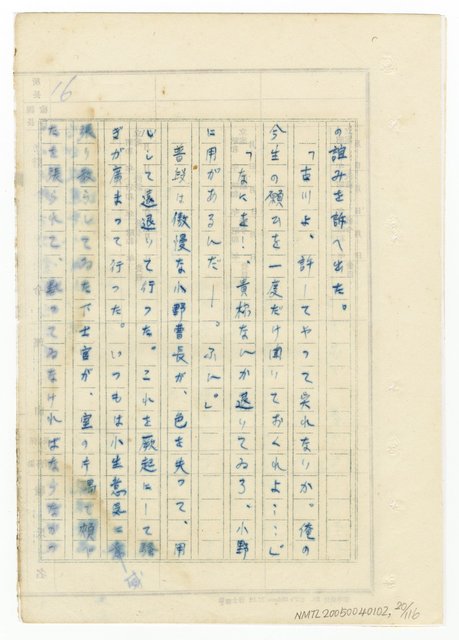 16
の誼みを訴へ出た。
「古川よ、許してやって呉れないか。俺の
今生の願ひを一度だけ聞いておくれよ……」
「なにを！、貴様なんか退いてゐろ、小野
に用があるんだ！。ふん。」
普段は傲慢な小野曹長が、色を失って、用
心して退いて行った。これを蹶起にして騒
ぎが広まって行った。いつもは小生意気に威
張り散らしてゐた下士官が、室の片隅で頬
たを張られて、黙ってゐなければならなかっ
NMTL20050040102, 20/116